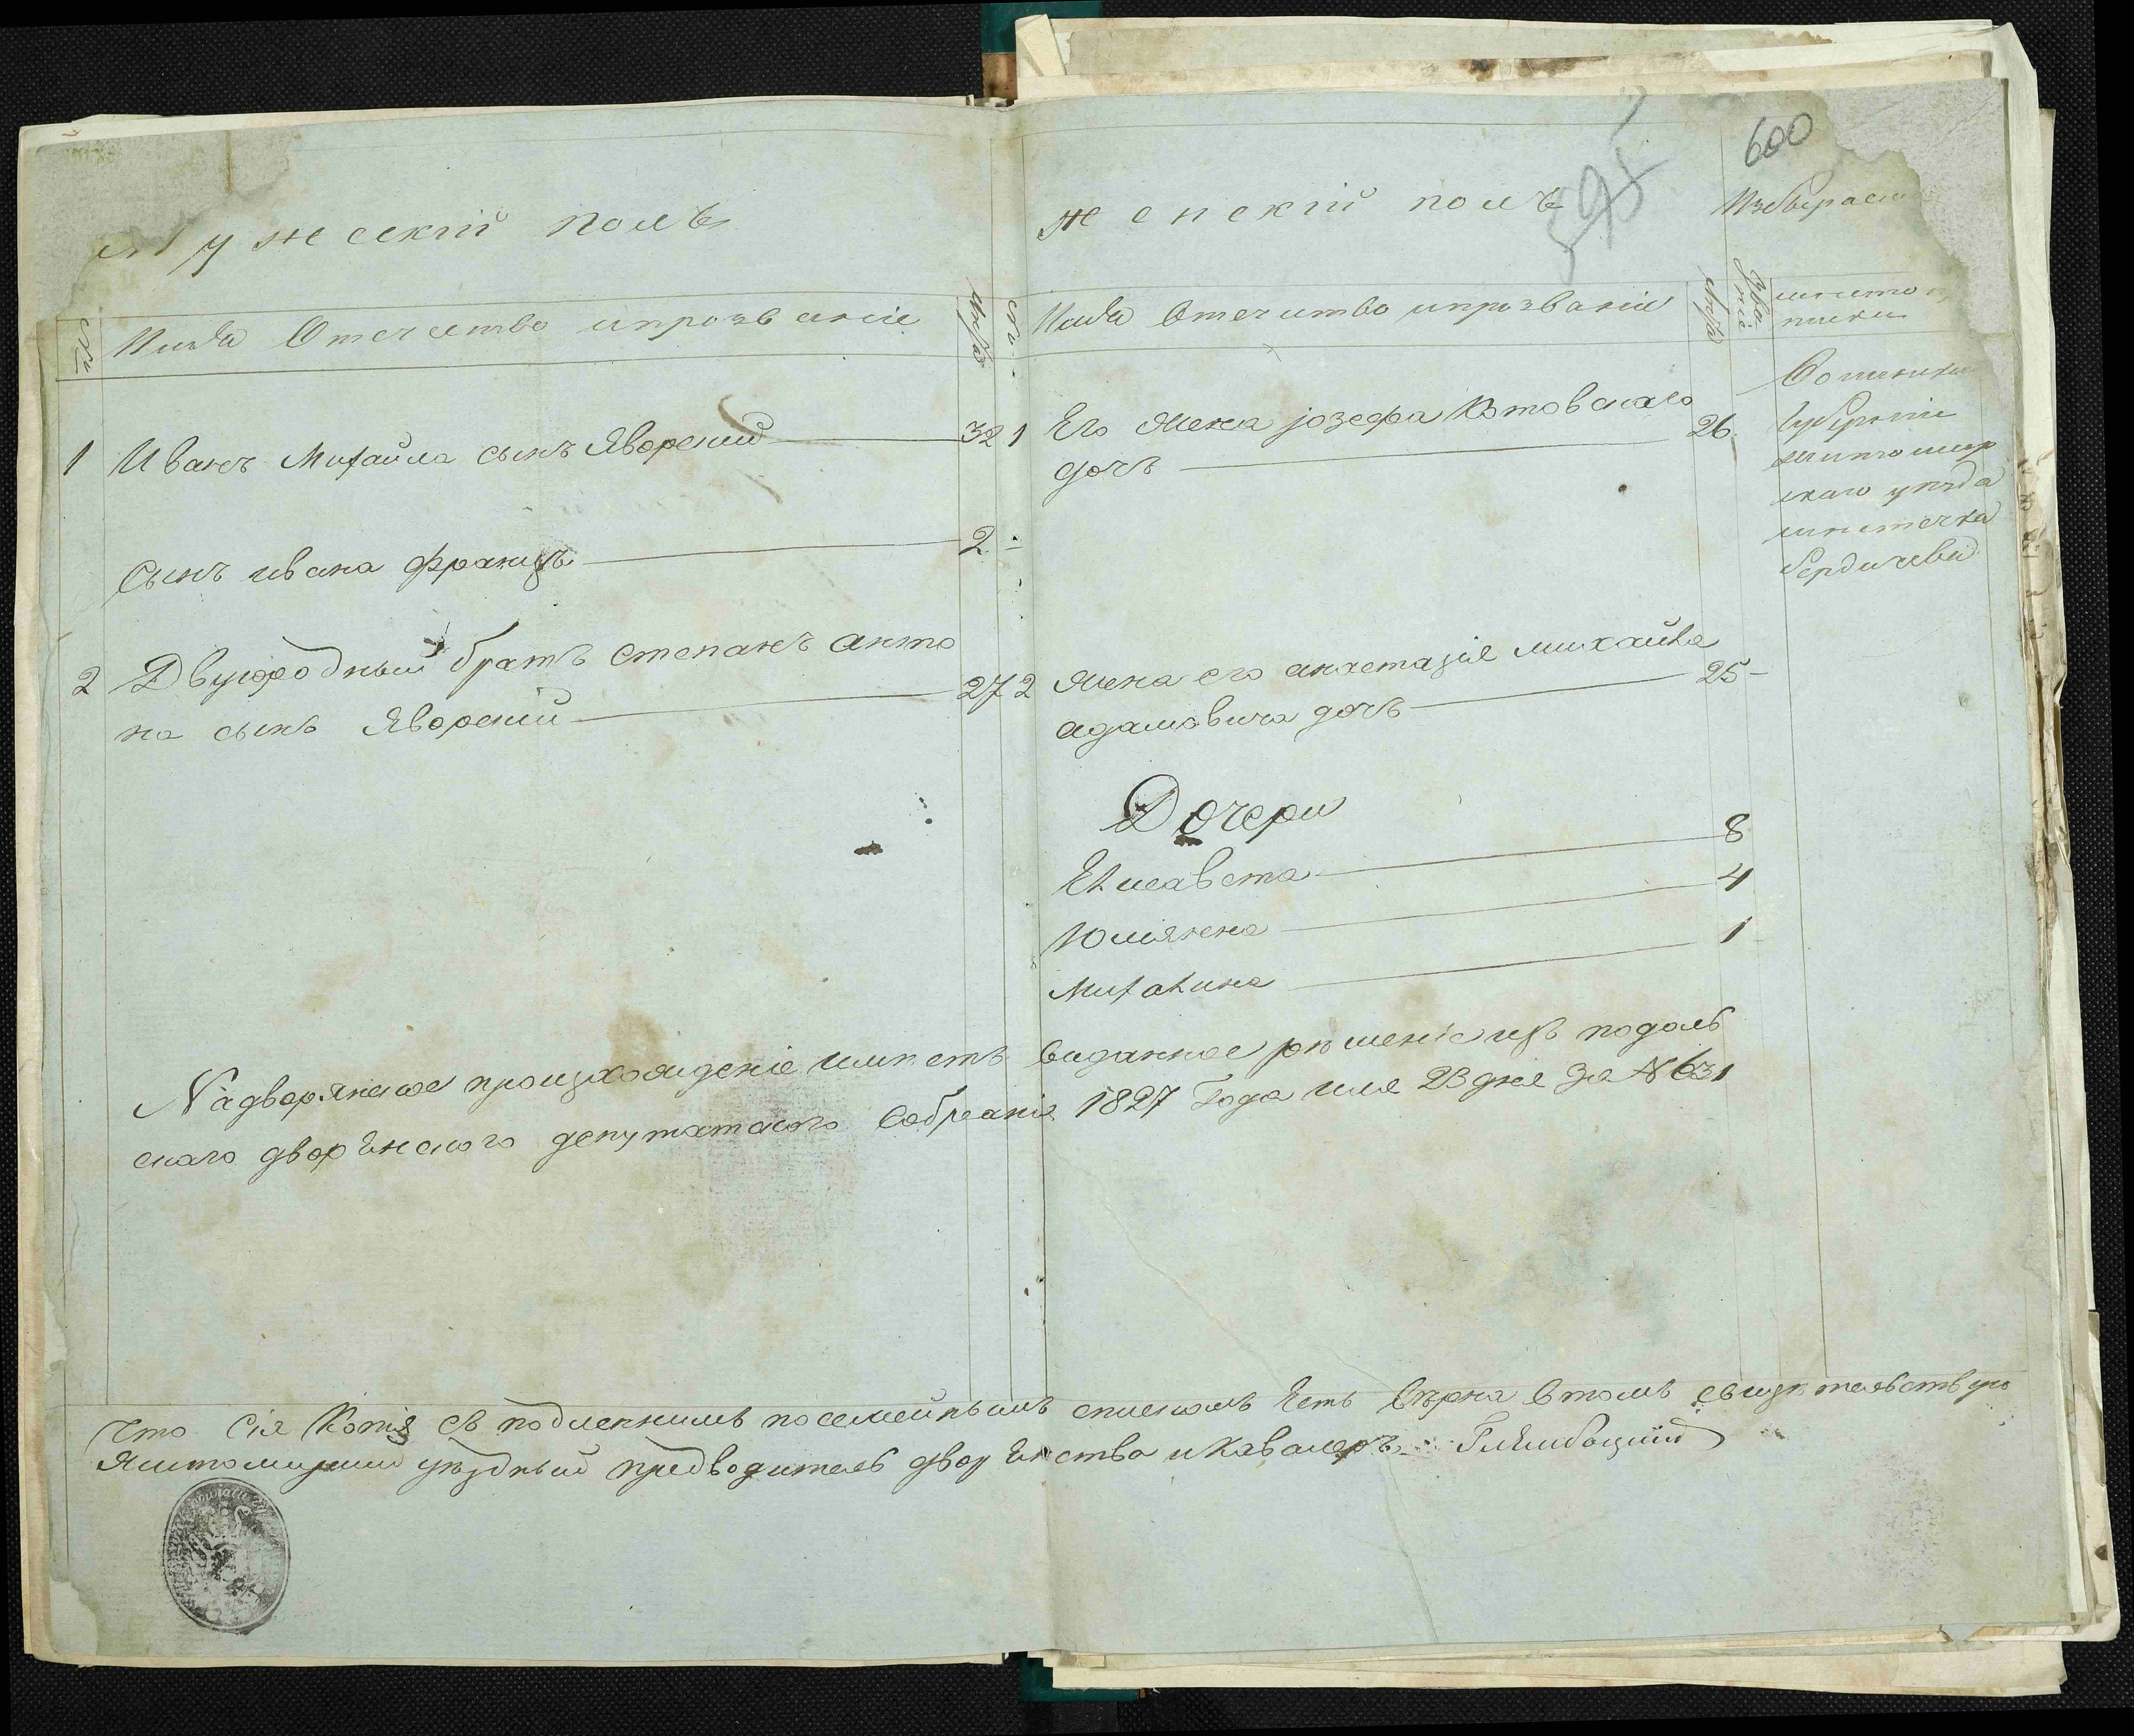 600
595
Мужескій полъ
Женскій полъ
№
Имя Отечество ипрозваніе
лѣта
№
Имя Отечество ипрозваніе
лѣта
Зва
ніе
1 Иванъ Михайла сынъ Яворский 32
1 Его Жена јозефа Котовскаго
дочь 26
Сынъ ивана Францъ 2
2 Двуюродный братъ степанъ анто
на сынъ Яворский 27
2 Жена его анастазія михайла
адамовича дочь 25
Дочери
Елисавета 8
Юліянна 4
Михалина 1
Волинской
Губерніи
житомир
скаго уезда
местечка
бердичева
Надворянское происхожденіе имѣетъ виданное рѣшеніе изъ подоль
скаго дворенского депутатского Собранія 1827 Года мая 23 дня За № 631
Что Сія Копія съ подленнимъ посемейнымъ спискомъ Есть Вѣрна Втомъ свидѣтельствую
Житомирский уѣздный предводитель дворенства иКавалеръ